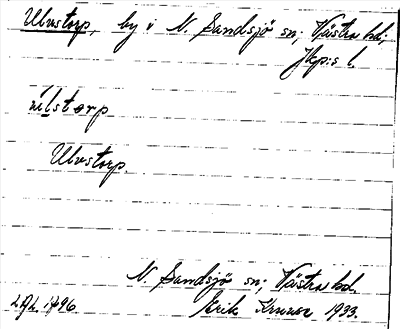 Ulvstorp, by i N. Sandsjö sn; Västra hd;
Jkp:s l.
ùlstorp
Ulvstorp.
N. Sandsjö sn; Västra hd.
Erik 1933.